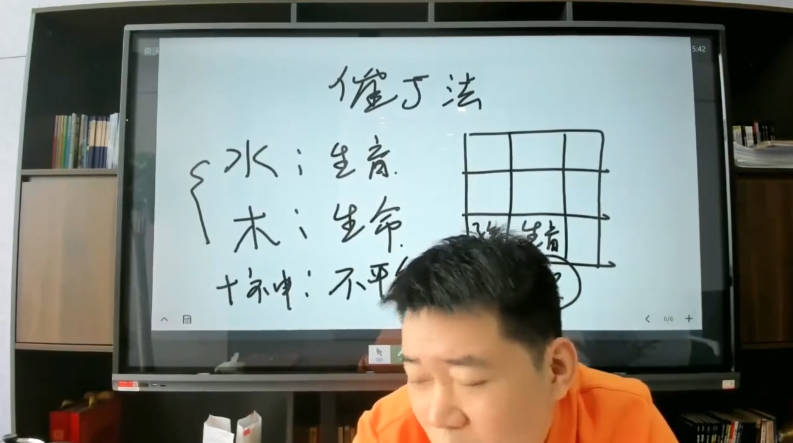 5:42
催丁法
水：生育
木：生命
十不中：不平
生育
6/6